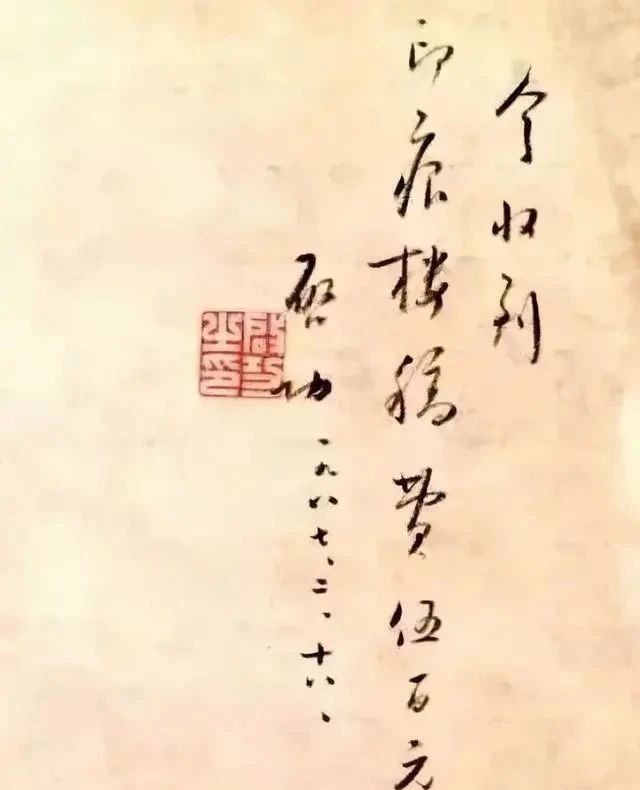 今收到
印痕楼稿费伍百元
启功
一九八七、二、十八、
启功之印